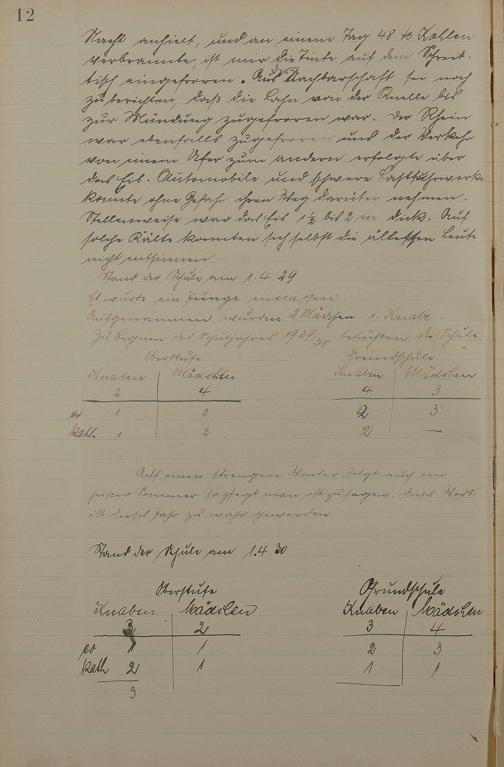 12
Nacht anhielt, und an einem Tag 48 to Kohlen
verbrannte, ist mir die Tinte auf dem Schreib-
tisch eingefroren. Aus Nachbarschaft sei noch
zu berichten, daß die Lahn von der Quelle bis
zur Mündung zugefroren war. Der Rhein
war ebenfalls zugefroren und der Verkehr
von einem Ufer zum andern erfolgte über
das Eis. Automobile und schwere Lastfuhrwerke
konnte ohne Gefahr ihren Weg darüber nehmen.
Stellenweise war das Eis 1½ bis 2 m dick. Auf
solche Kälte konnten sich selbst die ältesten Leute
nicht entsinnen.
Stand der Schule am 1.4.29
Es wurde ein Junge entlassen.
Aufgenommen wurden 2 Mädchen 1. Knabe.
Zu Beginn des Schuljahres 1929/30 besuchten die Schule
Oberstufe Grundschule
Knaben Mädchen Knaben Mädchen
2 4 4 3
ev 1 2 2 3
kath. 1 2 2 —
Auf einen strengen Winter folgt auch ein
Sommer so pflegt man oft zu sagen. Dieses Wort
ist dieses Jahr zu wahr geworden.
Stand der Schule am 1.4.30
Oberstufe Grundschule
Knaben Mädchen Knaben Mädchen
3 2 3 4
ev 1 1 2 3
kath 2 1 1 1
3